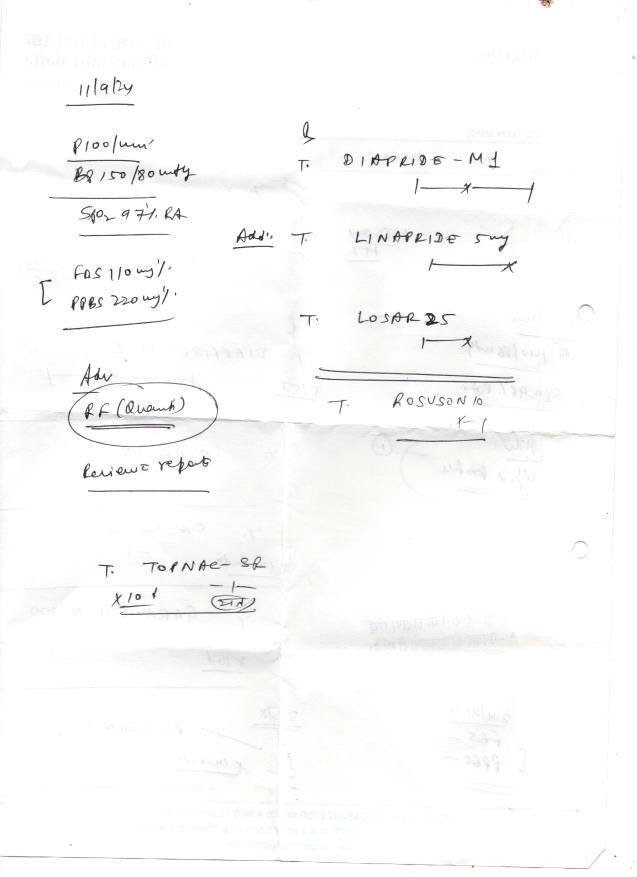 11/9/24
P 100/min
BP 150/80 mmHg
SpO2 97% RA
FBS 110 mg%
PPBS 220 mg%
Adv
RF (Quanti)
Review c̄ reports
T. TOPNAC-SR
x10 d
-1-
T. DIAPRIDE-M1
1—x—1
Add: T. LINAPRIDE 5mg
1—x
T. LOSAR 25
1—x
T. ROSUSON 10
x-1